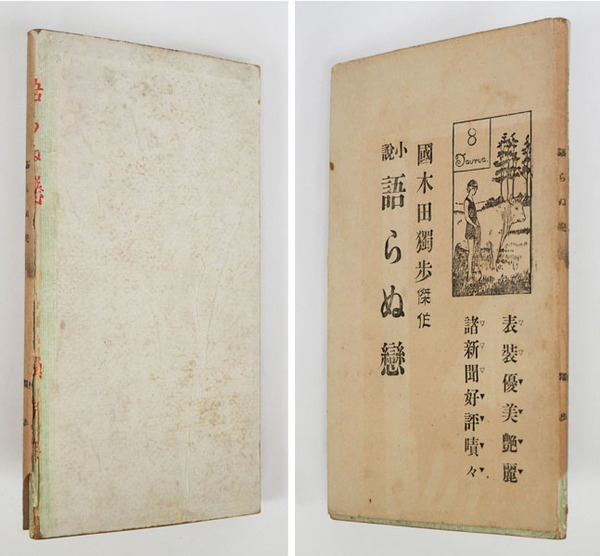 語らぬ戀
8
Taurus.
表装優美艶麗
諸新聞好評嘖々
國木田獨歩傑作
小説 語らぬ戀
語らぬ戀
獨歩